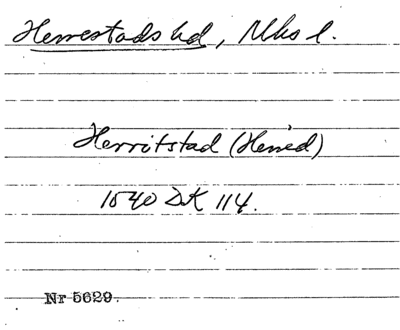 Herrestads hd, Mhs l.
Herritstad (Hered)
1540 DK 114.
Nr 5629.